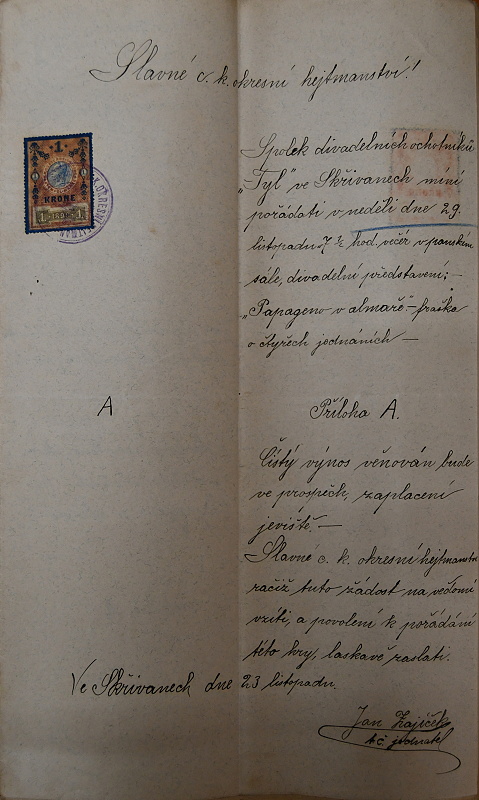 Slavné c. k. okresní hejtmanství!
1
KRONE
1 1898 1
Spolek divadelních ochotníků
„Tyl" ve Skřivanech míní
pořádati v neděli dne 29.
listopadu 7 ½ hod. večer v panském
sále, divadelní představení; —
„Papageno v almaře" — fraška
o čtyřech jednáních —
A
Příloha A.
Čistý výnos věnován bude
ve prospěch, zaplacení
jeviště. —
Slavné c. k. okresní hejtmanství
račiž tuto žádost na vědomí
vzíti, a povolení k pořádání
této hry, laskavě zaslati.
Ve Skřivanech dne 23 listopadu.
Jan Zajíček
t. č. jednatel